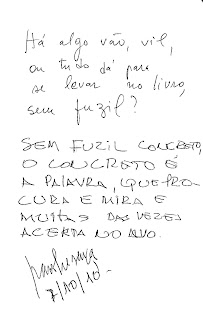 Há algo vão, vil,
ou tudo dá para
se levar no livro,
sem fuzil?
SEM FUZIL CONCRETO,
O CONCRETO É
A PALAVRA, QUE PRO-
CURA E MIRA E
MUITAS DAS VEZES
ACERTA NO ALVO.
7/10/10